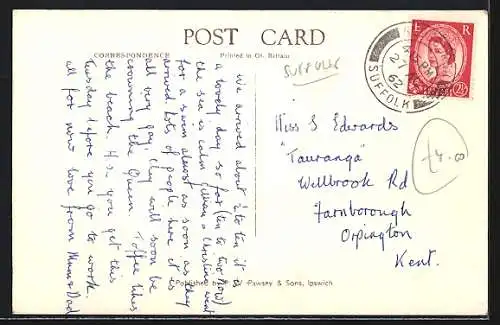 POST CARD
CORRESPONDENCE
Printed in Gt. Britain
we arrived about ¼ to ten it is
a lovely day so far (ten to two now)
the sea is calm Gillian & Christine went
for a swim almost as soon as they
arrived. Lots of people here it is
all very gay. They will soon be
crowning the Queen
the beach. Hope you get this
Tuesday before you go to work.
all for now love from Mum & Dad
SUFFOLK
E R
5 PM
2
62
SUFFOLK
2½
Miss S Edwards
"Tauranga"
Wellbrook Rd
Farnborough
Orpington
Kent.
Published by
Pawsey & Sons, Ipswich